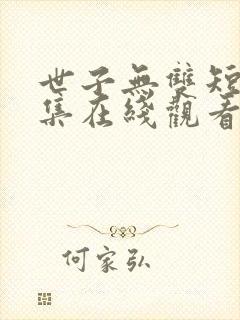 世子無雙短
集在綫觀看
何家弘